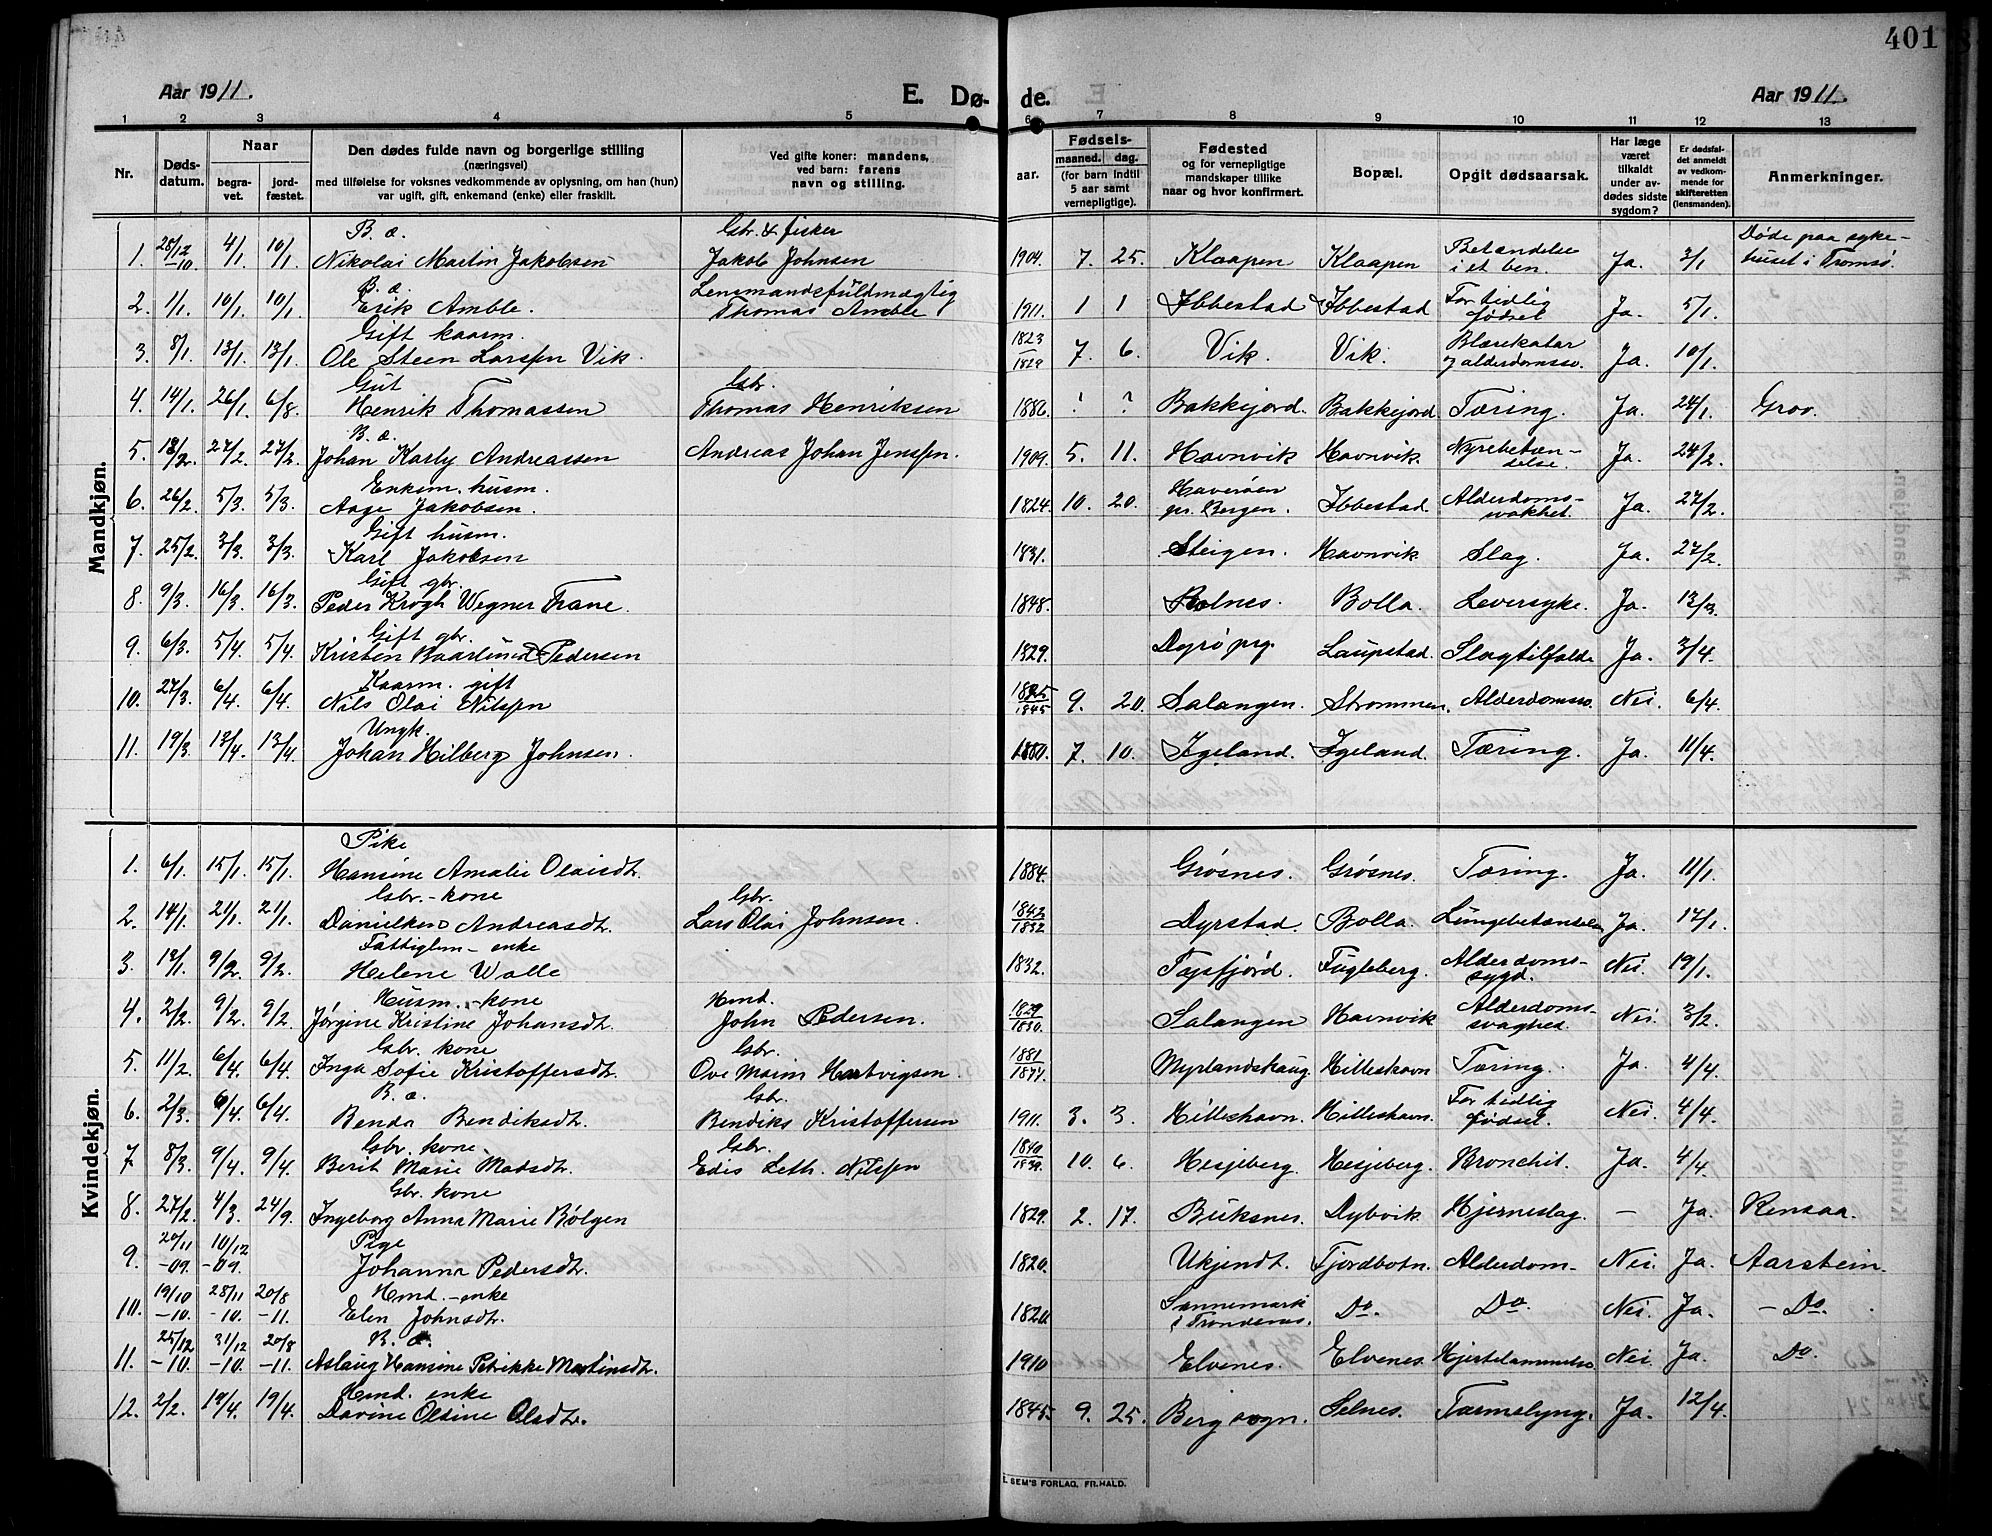 401
Aar 1911.
E. Dø- de.
Aar 1911.
1 2 3 4 5 6 7 8 9 10 11 12 13
Nr.
Døds-
datum.
Naar
begra-
vet.
jord-
fæstet.
Den dødes fulde navn og borgerlige stilling
(næringsvei)
med tilføielse for voksnes vedkommende av oplysning, om han (hun)
var ugift, gift, enkemand (enke) eller fraskilt.
Ved gifte koner: mandens,
ved barn: farens
navn og stilling.
aar.
Fødsels-
maaned. dag.
(for barn indtil
5 aar samt
vernepligtige).
Fødested
og for vernepligtige
mandskaper tillike
naar og hvor konfirmert.
Bopæl.
Opgit dødsaarsak.
Har læge
været
tilkaldt
under av-
dødes sidste
sygdom?
Er dødsfal-
det anmeldt
av vedkom-
mende for
skifteretten
(lensmanden).
Anmerkninger.
Mandkjøn.
B. a. Gbr. & fisker Betændelse Døde paa syke-
1. 28/12 -10. 4/1. 10/1. Nikolai Martin Jakobsen Jakob Johnsen 1904. 7. 25. Klaapen Klaapen i et ben. Ja. 3/1 huset i Tromsø.
B. a. Lensmandsfuldmægtig For tidlig
2. 1/1. 10/1. 10/1. Erik Amble. Thomas Amble 1911. 1 1 Ibbestad Ibbestad fødsel Ja. 5/1.
Gift kaarm. 1823 Blærekatar
3. 8/1. 13/1. 13/1. Ole Steen Larssen Vik. 1829 7. 6. Vik. Vik. og alderdomssv. Ja. 10/1.
Gut Gbr.
4. 14/1. 26/1. 6/8. Henrik Thomassen Thomas Henriksen 1886. ? ? Bakkejord. Bakkejord Tæring. Ja. 24/1. Grov.
B. a. Nyrebetæn-
5. 18/2. 27/2. 27/2. Johan Karly Andreassen Andreas Johan Jenssen. 1909. 5. 11. Havnvik Havnvik. delse. Ja. 24/2.
Enkem. husm. Haverøen Alderdoms-
6. 26/2 5/3. 5/3. Aage Jakobsen. 1824. 10. 20. pr. Bergen. Ibbestad. svakhet. Ja. 27/2.
Gift husm.
7. 25/2. 3/3. 3/3. Karl Jakobsen 1831. Steigen. Havnvik Slag. Ja. 27/2.
Gift gbr.
8. 9/3. 16/3. 16/3. Peder Krogh Wegner Trane. 1848. Rolnes. Bolla. Leversyke. Ja. 13/3.
Gift gbr.
9. 6/3. 5/4. 5/4. Kristen Baarlund Pedersen 1829. Dyrø prg. Laupstad. Slagtilfælde Ja. 3/4.
Kaarm. gift
10. 27/3. 6/4. 6/4. Nils Olai Nilssen 1845 9. 20. Salangen. Strømmen. Alderdomssv. Nei. 6/4.
Ungk.
11. 19/3. 13/4. 13/4. Johan Hilberg Johnsen. 1880. 7. 10. Igeland. Igeland. Tæring. Ja. 11/4.
Kvindekjøn.
Pike
1. 6/1. 15/1. 15/1. Hansine Amalie Olaisdtr. 1884. Grøsnes. Grøsnes. Tæring. Ja. 11/1.
Gbr. - kone Gbr. 1842
2. 14/1. 21/1. 21/1. Danielken Andreasdtr. Lars Olai Johnsen. 1832 Dyrstad. Bolla. Lungebetændelse Ja. 17/1.
Fattiglem - enke Alderdoms-
3. 12/1. 9/2. 9/2. Helene Wolle 1832. Tysfjord. Fugleberg. sygd. Nei. 19/1.
Husm. - kone Hmd. 1829 Alderdoms-
4. 2/2. 9/2. 9/2. Jørgine Kristine Johansdtr. John Pedersen. 1830. Salangen Havnvik svaghed. Nei. 3/2.
Gbr. kone Gbr. 1881
5. 11/2 6/4. 6/4. Inga Sofie Kristoffersdtr. Ove Marin Hartvigsen. 1877. Myrlandshaug Hilleshavn Tæring. Ja. 4/4.
B. a. Gbr. For tidlig
6. 2/3. 6/4. 6/4. Benda Bendiksdtr. Bendiks Kristoffersen 1911. 3. 3. Hilleshavn. Hilleshavn. fødsel. Nei. 4/4.
Gbr. kone Gbr. 1840
7. 8/3. 9/4. 9/4. Berit Marie Madsdtr. Edis Leth. Nilssen 1839. 10. 6. Hesjeberg. Hesjeberg. Bronchit. Ja. 4/4.
Gbr. kone
8. 27/2. 4/3. 24/9. Ingeborg Anna Marie Bølgen 1829. 2. 17. Buksnes. Dybvik. Hjerneslag. - Ja. Rensaa.
20/11 10/12 Pige
9. -09. -09. Johanna Pedersdtr. 1820. Ukjendt. Fjordbotn. Alderdom. Nei. Ja. Aarstein.
19/10 28/11 20/8 Hmd. - enke Sannemark
10. -10. -10. -11. Elen Johnsdtr. 1820. i Trondenes. Do. Do. Nei. Ja. - Do.
25/12 31/12 20/8 B. a.
11. -10. -10. -11. Aslaug Hansine Petrikke Martinsdtr. 1910 Elvenes. Elvenes. Hjertelammelse Nei. Ja. Do.
Hmd. enke
12. 2/2. 19/4. 19/4. Davine Oldine Olsdtr. 1845. 9. 25. Berg sogn. Selnes. Tarmslyng. Ja. 12/4.
SEM'S FORLAG, FR.HALD.